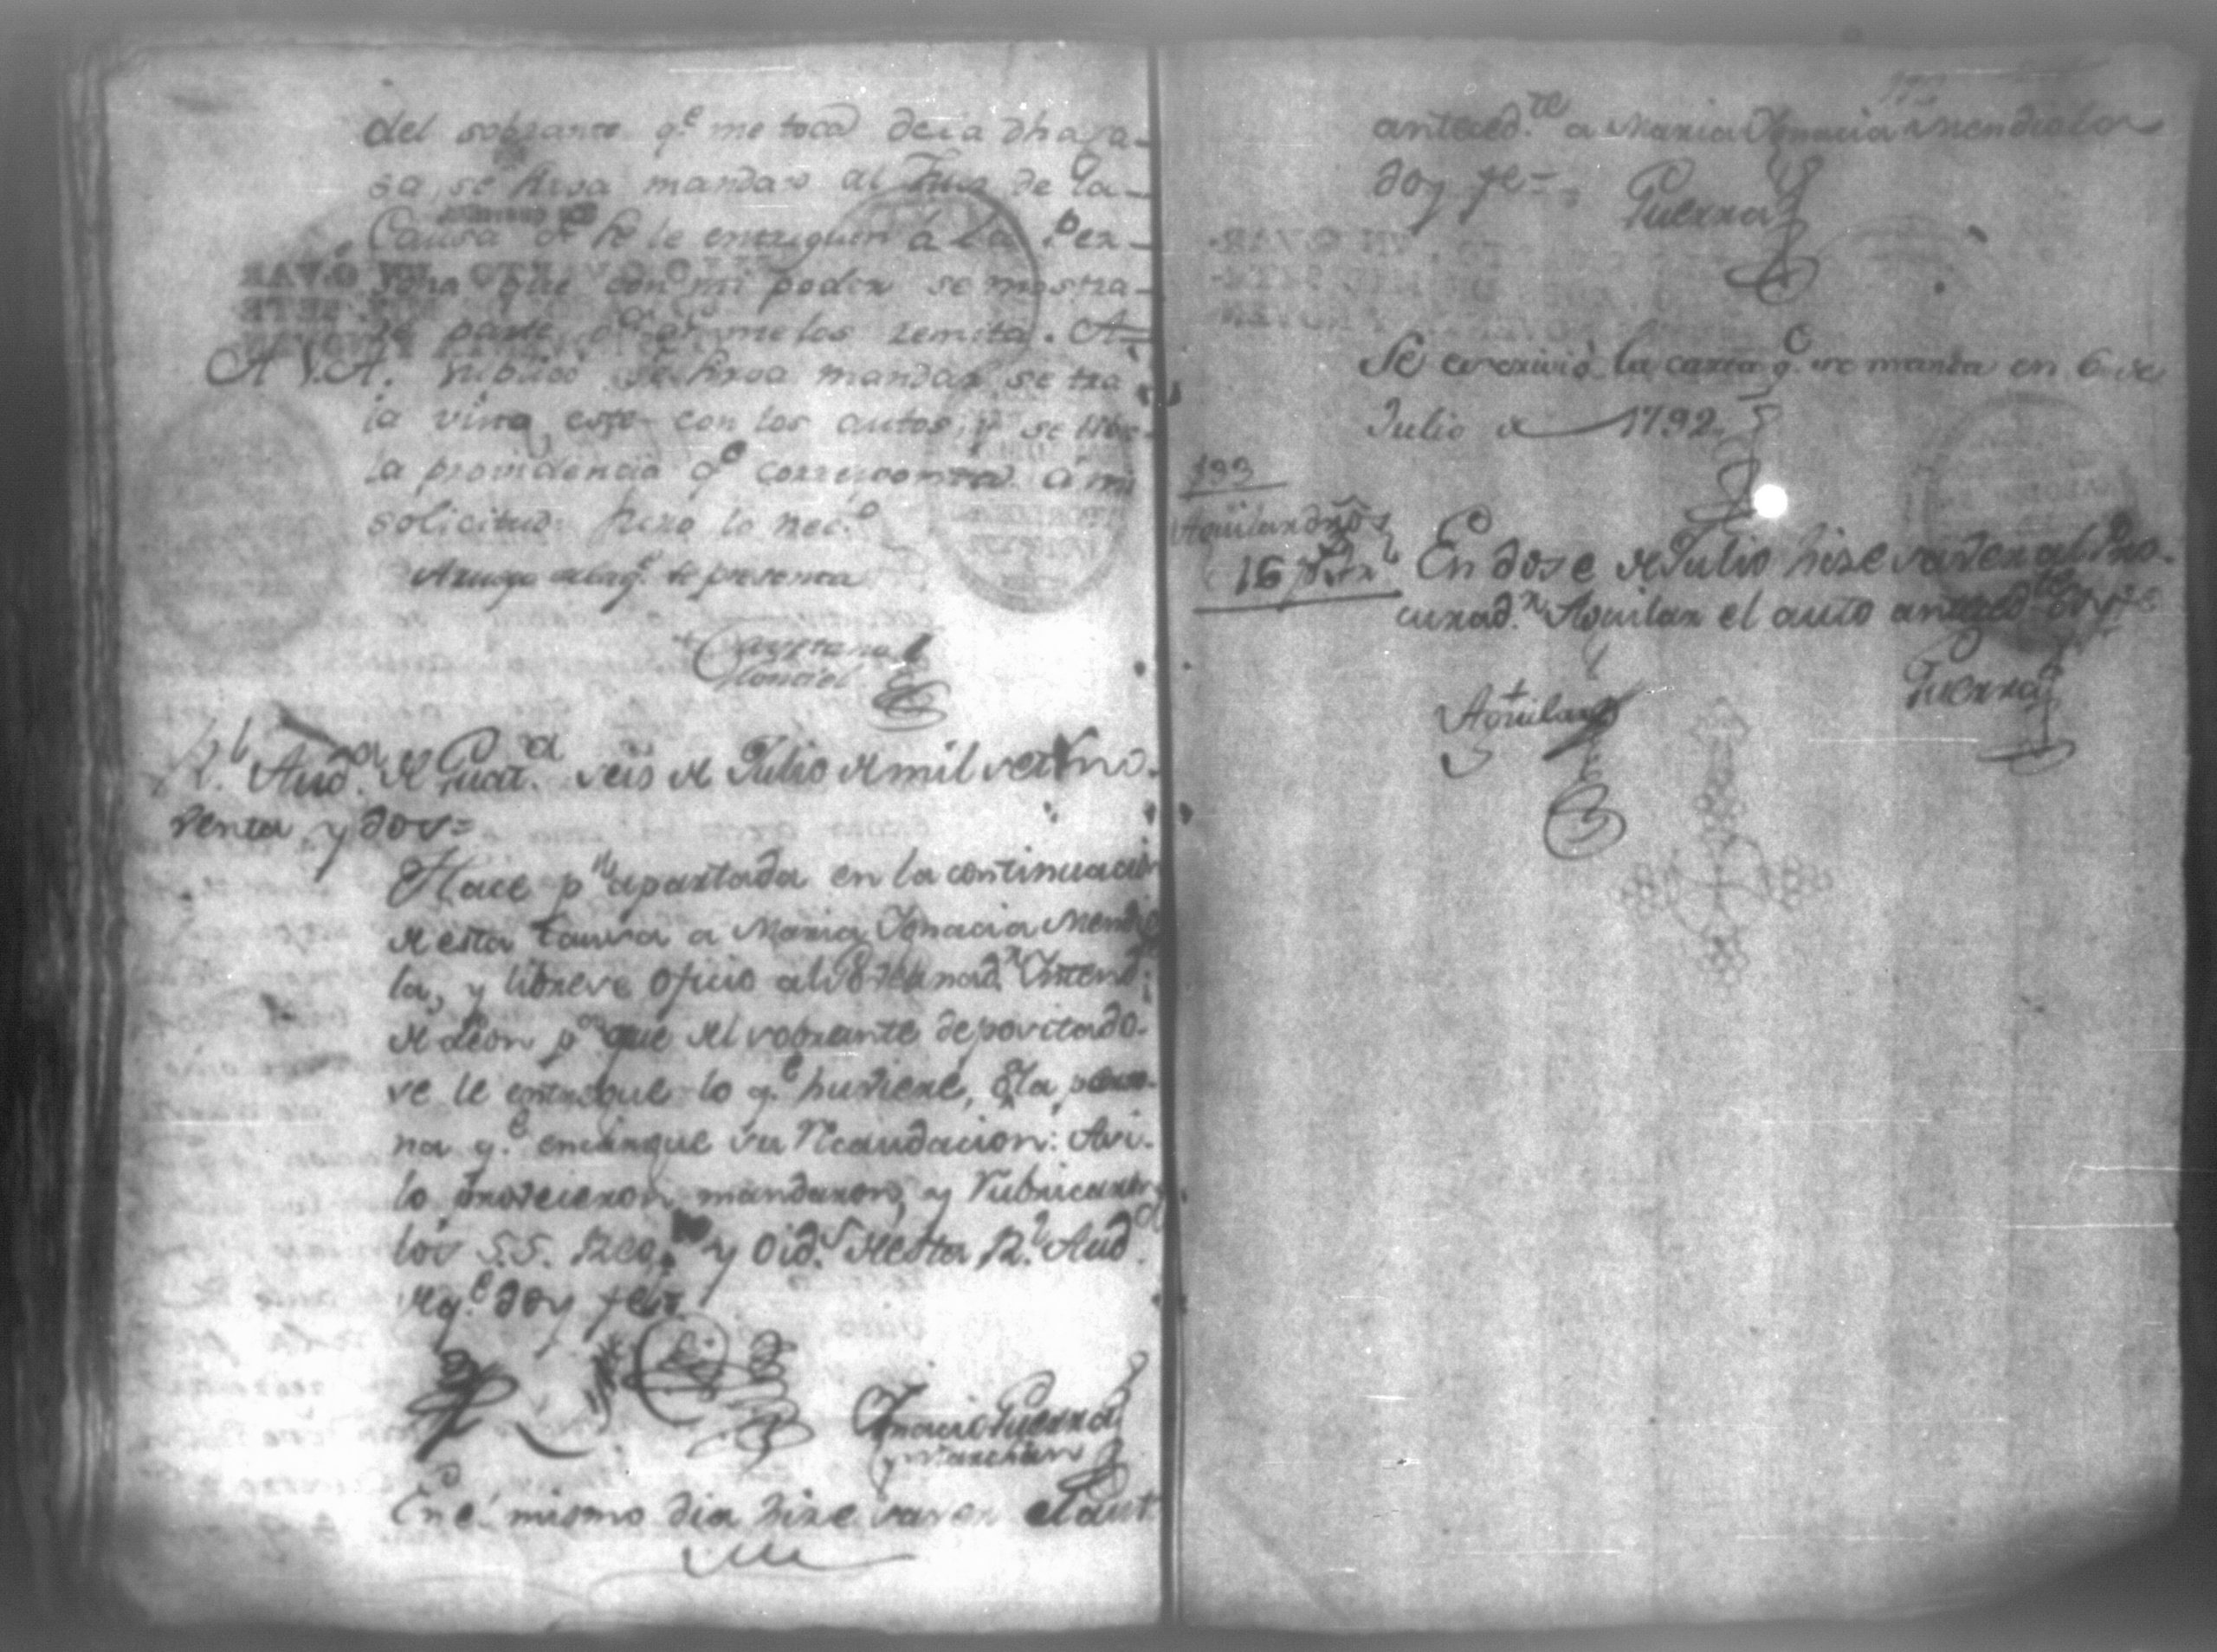 del sobrante q.e me toca de la dha Ca-
sa, se sirva mandar al Juez de la
Causa q.e se le entreguen á la Per-
sona que con mi poder se mostra-
re parte p.a q.e me los remita. A-
A V.A. suplico se sirva mandar se tra
ia vista este con los autos, y se libre
la providencia q.e corresponda á mi
solicitud. Juro lo nec.o
Aruego de la q.e se presenta
Cayetano
Montiel
R.l Aud.a de Guat.a seis de Julio de mil set.s no-
venta, y dos=
Hace p.r apartada en la continuacion
de esta Causa a Maria Ignacia Mendio
la, y librese oficio al Governad.r Intend.te
de Leon p.a que del sobrante depositado
se le entregue lo q.e huviere, á la perso-
na q.e encargue su Recaudacion: Asi
lo proveieron, mandaron, y rubricaron
los S.S. Reg.te y Oid.s de esta R.l Aud.a
de q.e doy fee
Ignacio Guerra
y Marchan
En el mismo dia hize saver el aut.
anteced.te a Maria Ignacia Mendiola
doy fe=
Guerra
Se escrivió la carta q.e se manda en 6 de
Julio de 1792.
Aguilar dros
16 r.s
En dose de Julio hize saver al Pro-
curad.r Aguilar el auto anteced.te doy fe
Guerra
Aguilar